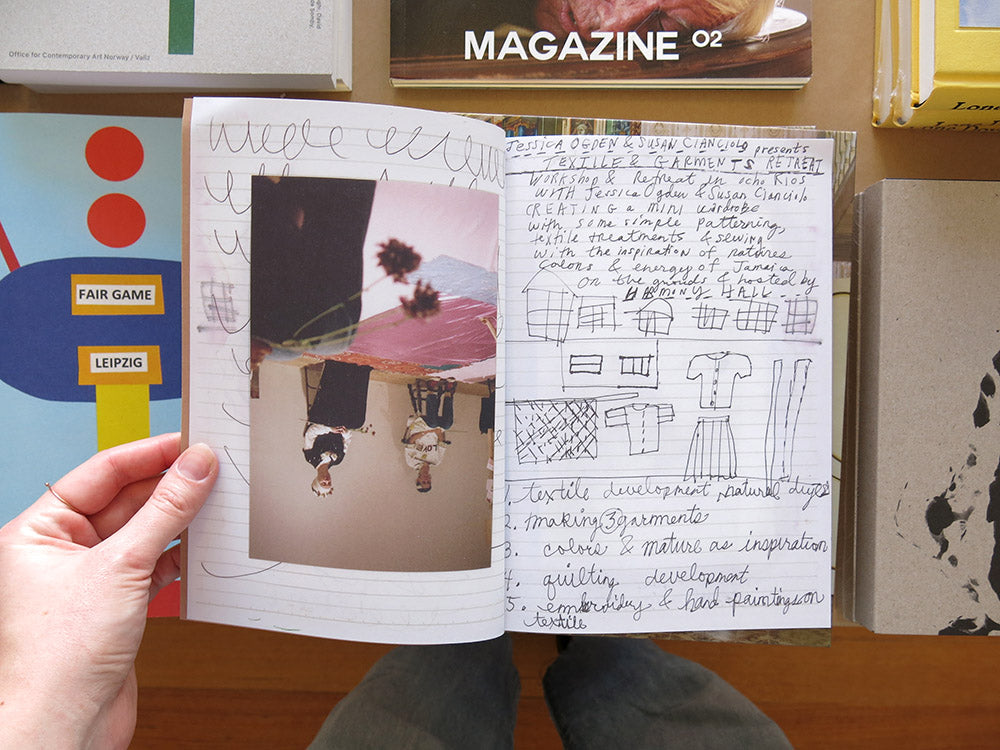 Office for Contemporary Art Norway / Valiz
MAGAZINE 02
FAIR GAME
LEIPZIG
LOVE
JESSICA OGDEN & SUSAN CIANCIOLO presents
TEXTILE & GARMENTS RETREAT
WORKSHOP & Retreat in ocho Rios
WITH Jessica Ogden & Susan Cianciolo
CREATING a MINI wardrobe
with some simple patterning,
textile treatments & sewing
with the inspiration of natures
Colors & energy of Jamaica
on the grounds & hosted by
HARMONY HALL
1. textile development, natural dyes
2. making 3 garments
3. colors & nature as inspiration
4. quilting development
5. embroidery & hand paintings on
textile